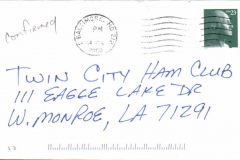 confirmed
BALTIMORE, MD 212
PM
TWIN CITY HAM CLUB
111 EAGLE LAKE DR
W. MONROE, LA 71291